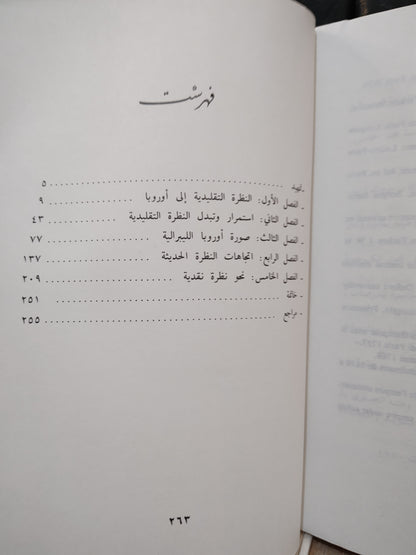 فهرست
تمهيد ٥
ـ الفصل الأول: النظرة التقليدية إلى أوروبا ٩
ـ الفصل الثاني: استمرار وتبدل النظرة التقليدية ٤٣
ـ الفصل الثالث: صورة أوروبا الليبرالية ٧٧
ـ الفصل الرابع: اتجاهات النظرة الحديثة ١٣٧
ـ الفصل الخامس: نحو نظرة نقدية ٢٠٩
ـ خاتمة ٢٥١
ـ مراجع ٢٥٥
٢٦٣